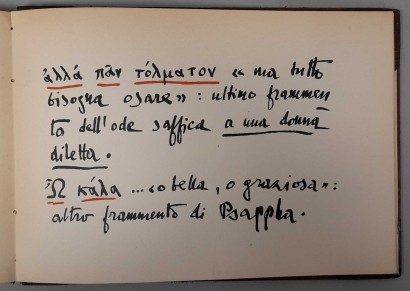 ἀλλὰ πᾶν τόλματον « ma tutto
bisogna osare» : ultimo frammen
to dell'ode saffica a una donna
diletta.
Ὦ κάλα ... «o bella, o graziosa»:
altro frammento di Psappha.